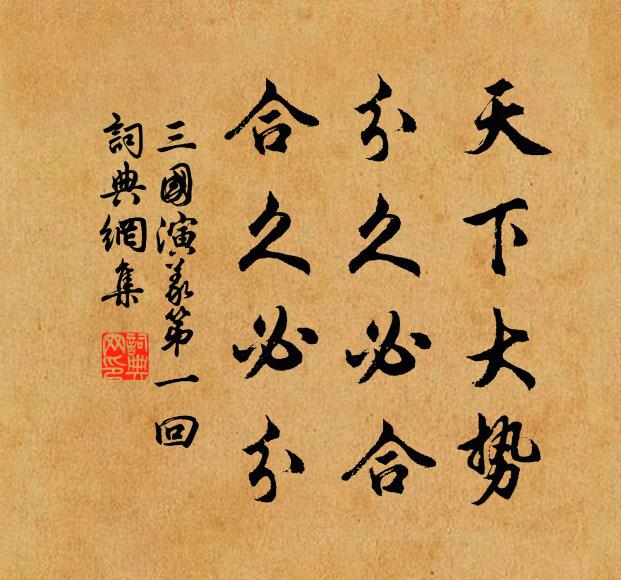 天下大势
分久必合
合久必分
三國演義第一回
詞典網集
詞典网印